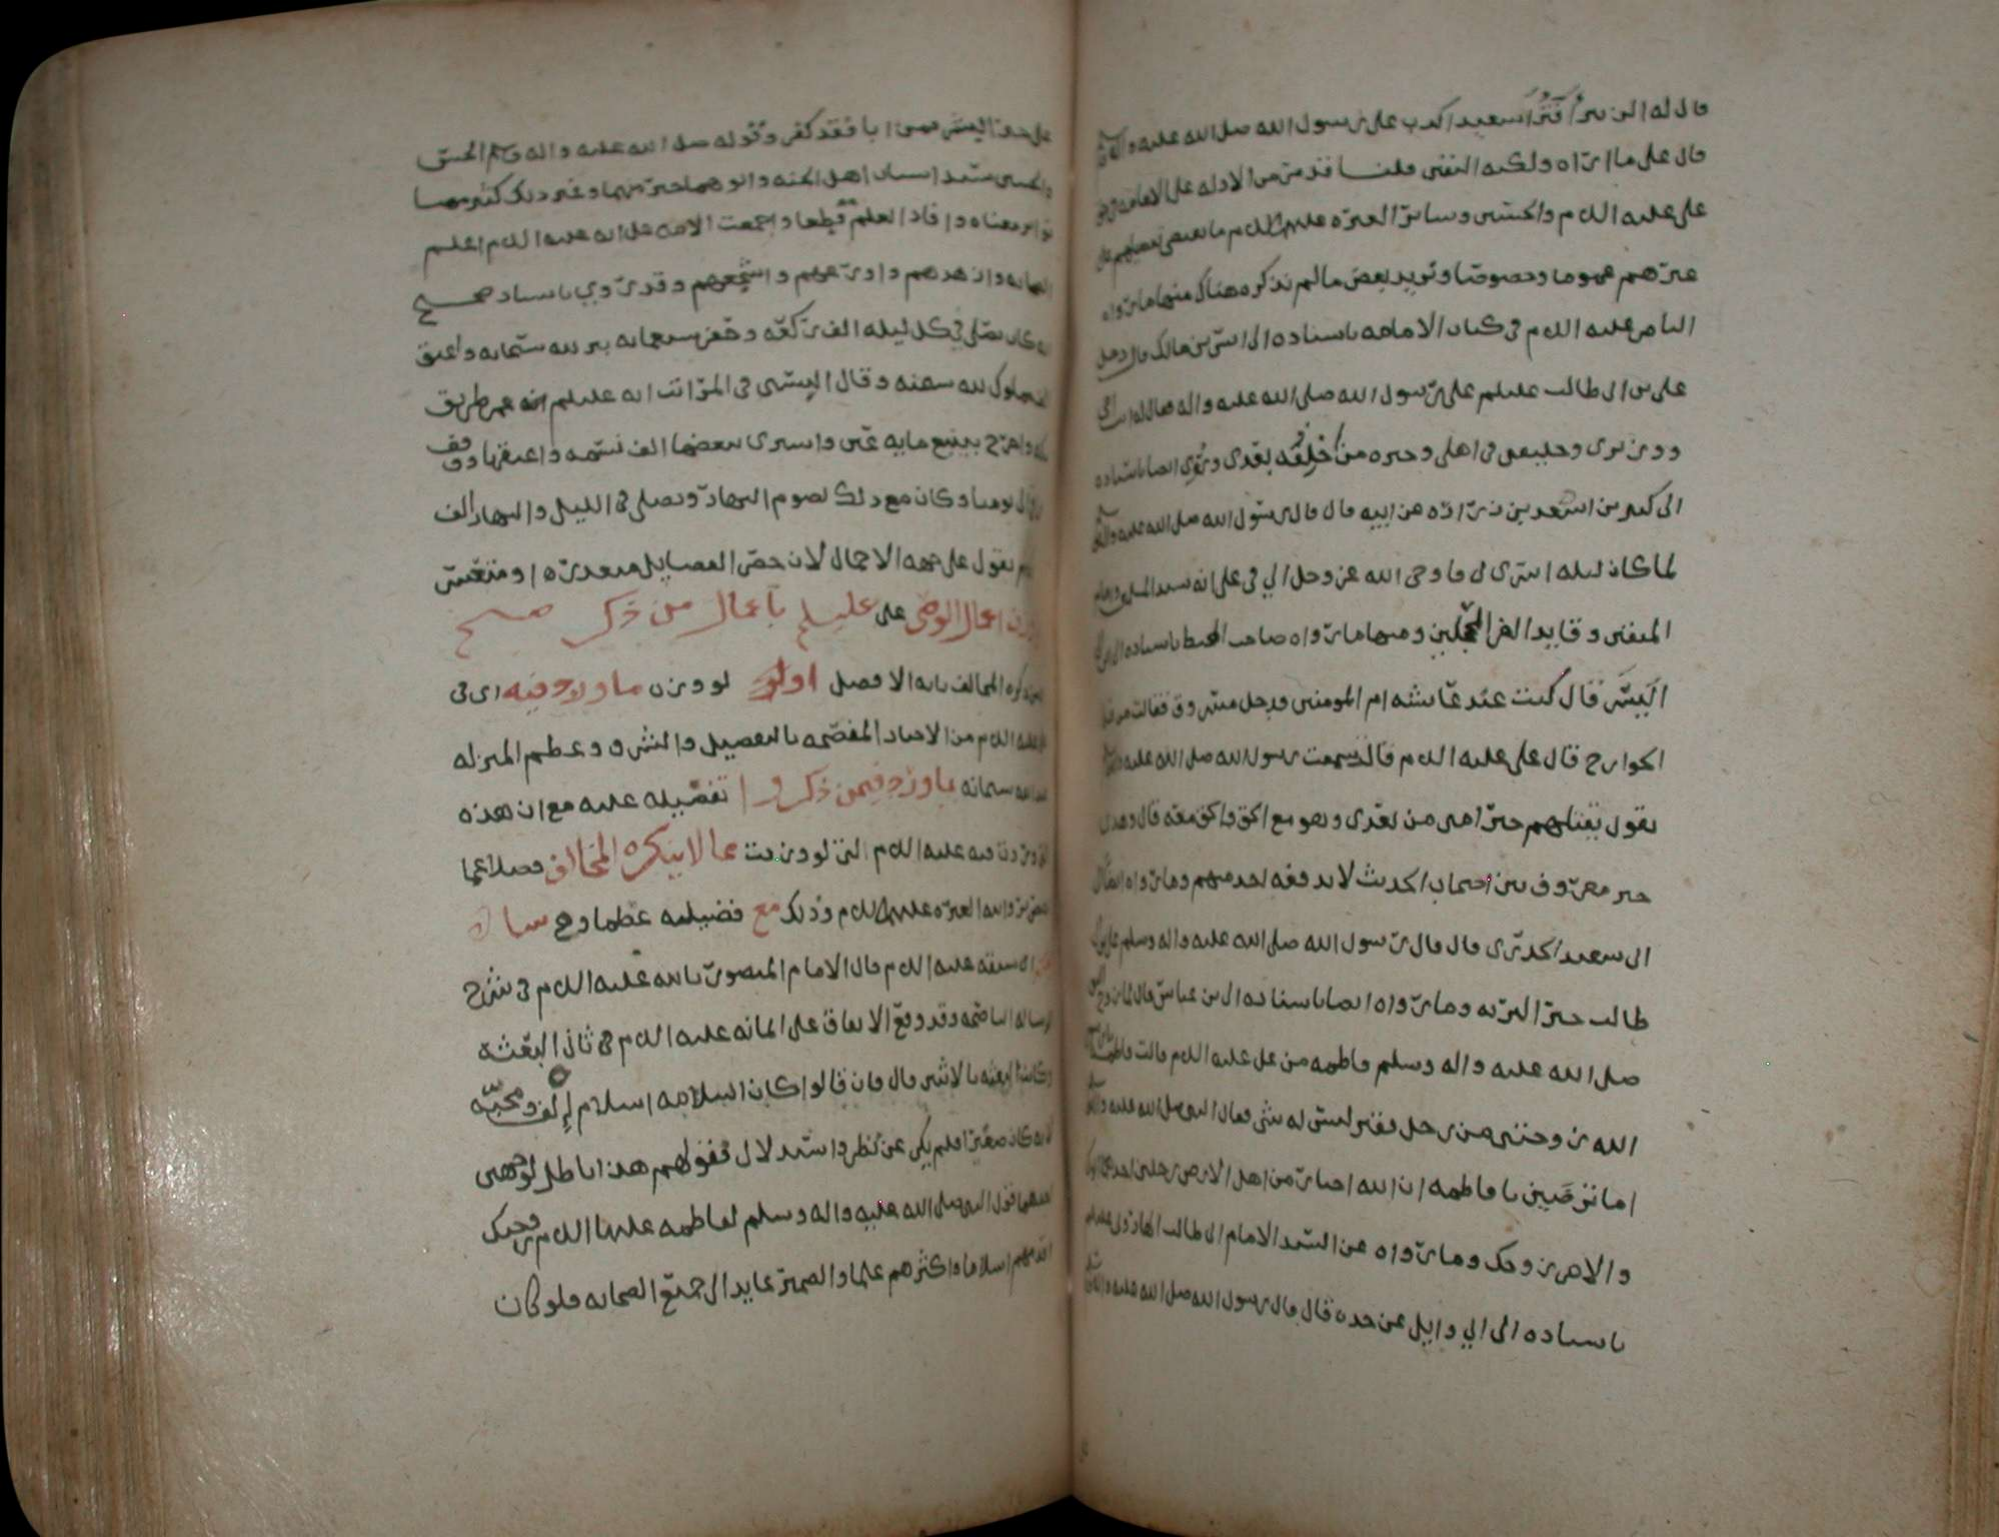 قال له ابن عمر أفترا سعيد اكدب على رسول الله صلى الله عليه واله
قال على ما اراه ولكنه النفس قلنا قد مر من الادلة على الامامة
على عليه السلم والحسنين وساير العتره عليهم السلم ما يقضي بتفضيلهم على
غيرهم عموما وخصوصا ونريد بعض ما لم نذكره هناك منها ما رواه
الناصر عليه السلم في كتاب الامامه باسناده الى انس بن مالك قال دخل
على بن ابي طالب عليلم على رسول الله صلى الله عليه واله فقال له انت اخي
ووزيري وخليفتي في اهلي وخير من أخلفه بعدي وروي ايضا باسناده
الى كثير بن اسعد بن زراره عن ابيه قال قال رسول الله صلى الله عليه واله
لما كان ليله اسري بي فاوحى الله عز وجل الي في على انه سيد المسلمين وامام
المتقين وقايد الغر المحجلين ومنها ما رواه صاحب المحيط باسناده الى
اليسر قال كنت عند عائشه ام المومنين فدخل مسروق فقالت من قتل
الخوارج قال على عليه السلم قالت سمعت رسول الله صلى الله عليه واله
يقول يقتلهم خير امتي من بعدي وهو مع الحق والحق معه قال وهذا
خبر معروف بين اصحاب الحديث لا يدفعه احد منهم وما رواه
ابي سعيد الخدري قال قال رسول الله صلى الله عليه واله وسلم على بن ابي
طالب خير البريه وما رواه ايضا باسناده الى ابن عباس قال لما زوج النبي
صلى الله عليه واله وسلم فاطمه من على عليه السلم قالت فاطمه يا رسول
الله زوجتني من رجل فقير ليس له شي فقال النبي صلى الله عليه واله
اما ترضين يا فاطمه ان الله اختار من اهل الارض رجلين احدهما ابوك
والاخر زوجك وما رواه عن السيد الامام ابي طالب الهاروني
باسناده الى ابي وايل عن حده قال قال رسول الله صلى الله عليه واله
على خير البشر فمن ابا فقد كفر وقوله صلى الله عليه واله وسلم الحسن
والحسين سيدا شباب اهل الجنه وابوهما خير منهما وغير ذلك كثير مما
تواتر معناه وافاد العلم قطعا واجمعت الامه على انه عليه السلم اعلم
الصحابه وازهدهم واورعهم واشجعهم وقد روي باسناد صحيح
انه كان يصلي في كل ليله الف ركعه
مملوك لله سبحنه وقال البستي في المراتب انه عليلم
واخرج بينبع مايه عين واشترى ببعضها الف نسمه واعتقها ووقف
وكان مع ذلك يصوم النهار ويصلي في الليل والنهار الف
نقول على جهه الاجمال لان حصر الفضايل متعذره او متعسر
اعمال الوصي على عليلم باعمال من ذكر صحيح
المخالف بانه الافضل اولو لو وزن ما ورد فيه اى في
عليه السلم من الاخبار المفصحه بالتفضيل والشرف وعظم المنزله
عند الله سبحانه بما ورد فيمن ذكروا تفضيله عليه مع ان هذه
فيه عليه السلم التي لو وزنت مما لا ينكره المخالف فضلا عما
العتره عليهم السلم وذلك مع فضيلته عظما وهي
سبقه عليه السلم قال الامام المنصور بالله عليه السلم في شرح
الرساله الناصحه وقد وقع الاتفاق على ايمانه عليه السلم في ثاني البعثة
وكانت البعثه بالاثنين قال فان قالوا كان اسلامه اسلام إلف ومحبه
لانه كان صغيرا فلم يكن عن نظر واستدلال فقولهم هذا باطل لوجهين
احدهما قول النبي صلى الله عليه واله وسلم لفاطمه عليها السلم زوجتك
اقدمهم اسلاما واكثرهم علما والضمير عايد الى جميع الصحابه فلو كان